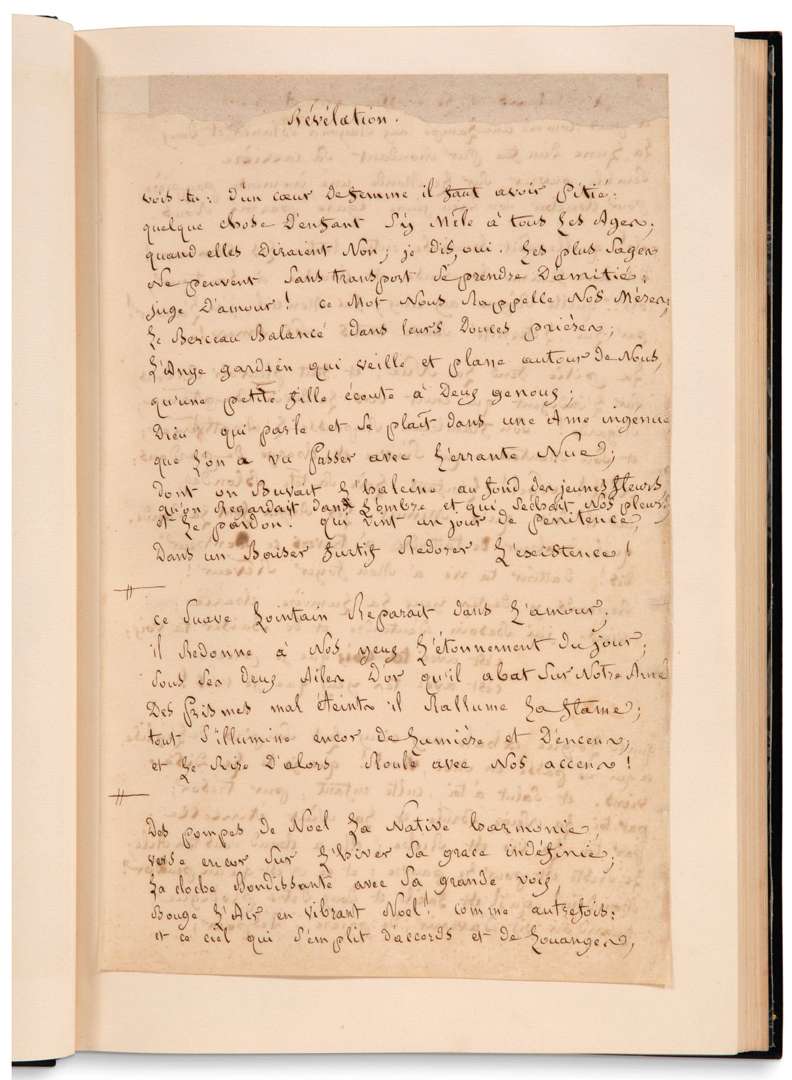 Révélation.
vois-tu: d'un cœur de femme il faut avoir Pitié:
quelque chose D'enfant S'y Mêle à tous Les Ages;
quand elles Diraient Non; je dis, oui. Les plus Sages
Ne peuvent Sans transport Se prendre D'amitié:
juge D'amour! ce Mot Nous Rappelle Nos Mères;
Le Berceau Balancé dans leurs Douces prières;
L'Ange gardien qui veille et plane autour de Nous,
qu'une petite fille écoute à Deux genoux;
Dieu qui parle et Se plaît dans une Ame ingenue
que L'on a vu Passer avec L'errante Nue;
dont on Buvait L'haleine au fond des jeunes fleurs
qu'on Regardait dans L'ombre et qui Séchait Nos pleurs;
et Le pardon! qui vint un jour de pénitence,
Dans un Baiser furtif Redorer L'existence!
ce Suave Lointain Reparait dans L'amour;
il Redonne à Nos yeux L'étonnement du jour;
Sous Ses deux Ailes D'or qu'il abat Sur Notre Ame
Des Prismes mal éteints il Rallume La flame;
tout S'illumine encor de Lumière et D'encens;
et Le Rire D'alors Roule avec Nos accens!
Des pompes de Noel La Native harmonie,
verse encor Sur L'hiver Sa grace indéfinie;
La cloche Bondissante avec Sa grande voix,
Bouge L'Air en vibrant Noel! comme autrefois:
et ce ciel qui S'emplit d'accords et de Louanges,